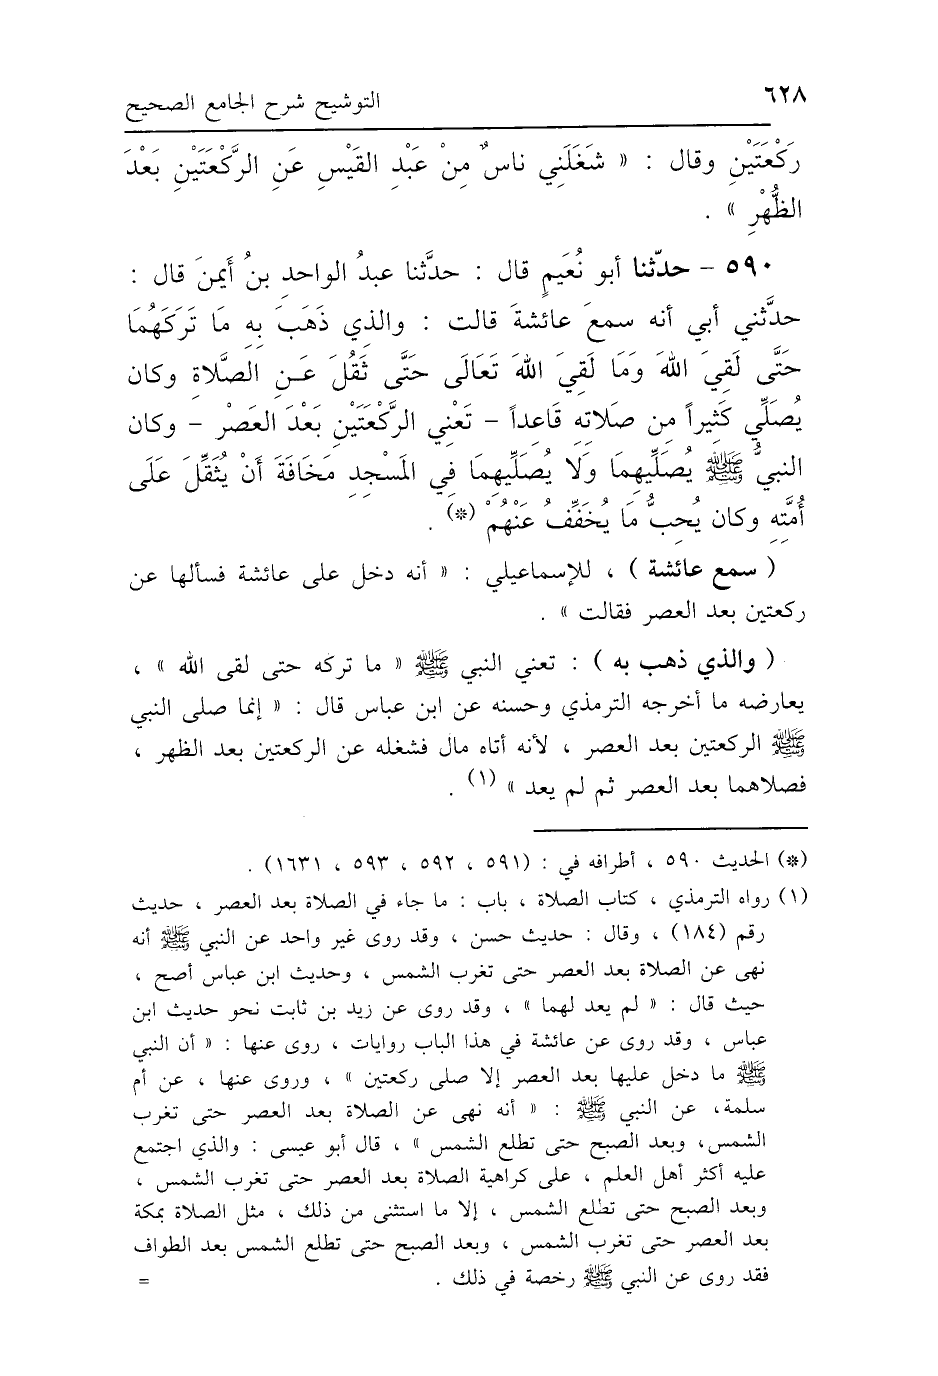 ٦٢٨
التوشيح شرح الجامع الصحيح
رَكْعَتَيْنِ وقال : « شَغَلَنِي ناسٌ مِنْ عَبْدِ القَيْسِ عَنِ الرَّكْعَتَيْنِ بَعْدَ
الظُّهْرِ » .
٥٩٠ – حدّثنا أبو نُعَيمٍ قال : حدَّثنا عبدُ الواحدِ بنُ أيمنَ قال :
حدَّثني أبي أنه سمعَ عائشةَ قالت : والذي ذَهَبَ بِهِ مَا تَرَكَهُمَا
حَتَّى لَقِيَ اللهَ وَمَا لَقِيَ اللهَ تَعَالَى حَتَّى ثَقُلَ عَنِ الصَّلَاةِ وكان
يُصَلِّي كَثِيراً مِن صلاتِهِ قَاعِداً – تَعْنِي الرَّكْعَتَيْنِ بَعْدَ العَصْرِ – وكان
النبيُّ ﷺ يُصَلِّيهِمَا وَلَا يُصَلِّيهِمَا فِي المَسْجِدِ مَخَافَةَ أَنْ يُثَقِّلَ عَلَى
أُمَّتِهِ وكان يُحِبُّ مَا يُخَفِّفُ عَنْهُمْ (*) .
( سمع عائشة ) ، للإسماعيلي : « أنه دخل على عائشة فسألها عن
ركعتين بعد العصر فقالت » .
( والذي ذهب به ) : تعني النبي ﷺ « ما تركه حتى لقى الله » ،
يعارضه ما أخرجه الترمذي وحسنه عن ابن عباس قال : « إنما صلى النبي
ﷺ الركعتين بعد العصر ، لأنه أتاه مال فشغله عن الركعتين بعد الظهر ،
فصلاهما بعد العصر ثم لم يعد » (١) .
(*) الحديث ٥٩٠ ، أطرافه في : (٥٩١ ، ٥٩٢ ، ٥٩٣ ، ١٦٣١) .
(١) رواه الترمذي ، كتاب الصلاة ، باب : ما جاء في الصلاة بعد العصر ، حديث
رقم (١٨٤) ، وقال : حديث حسن ، وقد روى غير واحد عن النبي ﷺ أنه
نهى عن الصلاة بعد العصر حتى تغرب الشمس ، وحديث ابن عباس أصح ،
حيث قال : « لم يعد لهما » ، وقد روى عن زيد بن ثابت نحو حديث ابن
عباس ، وقد روى عن عائشة في هذا الباب روايات ، روى عنها : « أن النبي
ﷺ ما دخل عليها بعد العصر إلا صلى ركعتين » ، وروى عنها ، عن أم
سلمة، عن النبي ﷺ : « أنه نهى عن الصلاة بعد العصر حتى تغرب
الشمس، وبعد الصبح حتى تطلع الشمس » ، قال أبو عيسى : والذي اجتمع
عليه أكثر أهل العلم ، على كراهية الصلاة بعد العصر حتى تغرب الشمس ،
وبعد الصبح حتى تطلع الشمس ، إلا ما استثنى من ذلك ، مثل الصلاة بمكة
بعد العصر حتى تغرب الشمس ، وبعد الصبح حتى تطلع الشمس بعد الطواف
فقد روى عن النبي ﷺ رخصة في ذلك . =